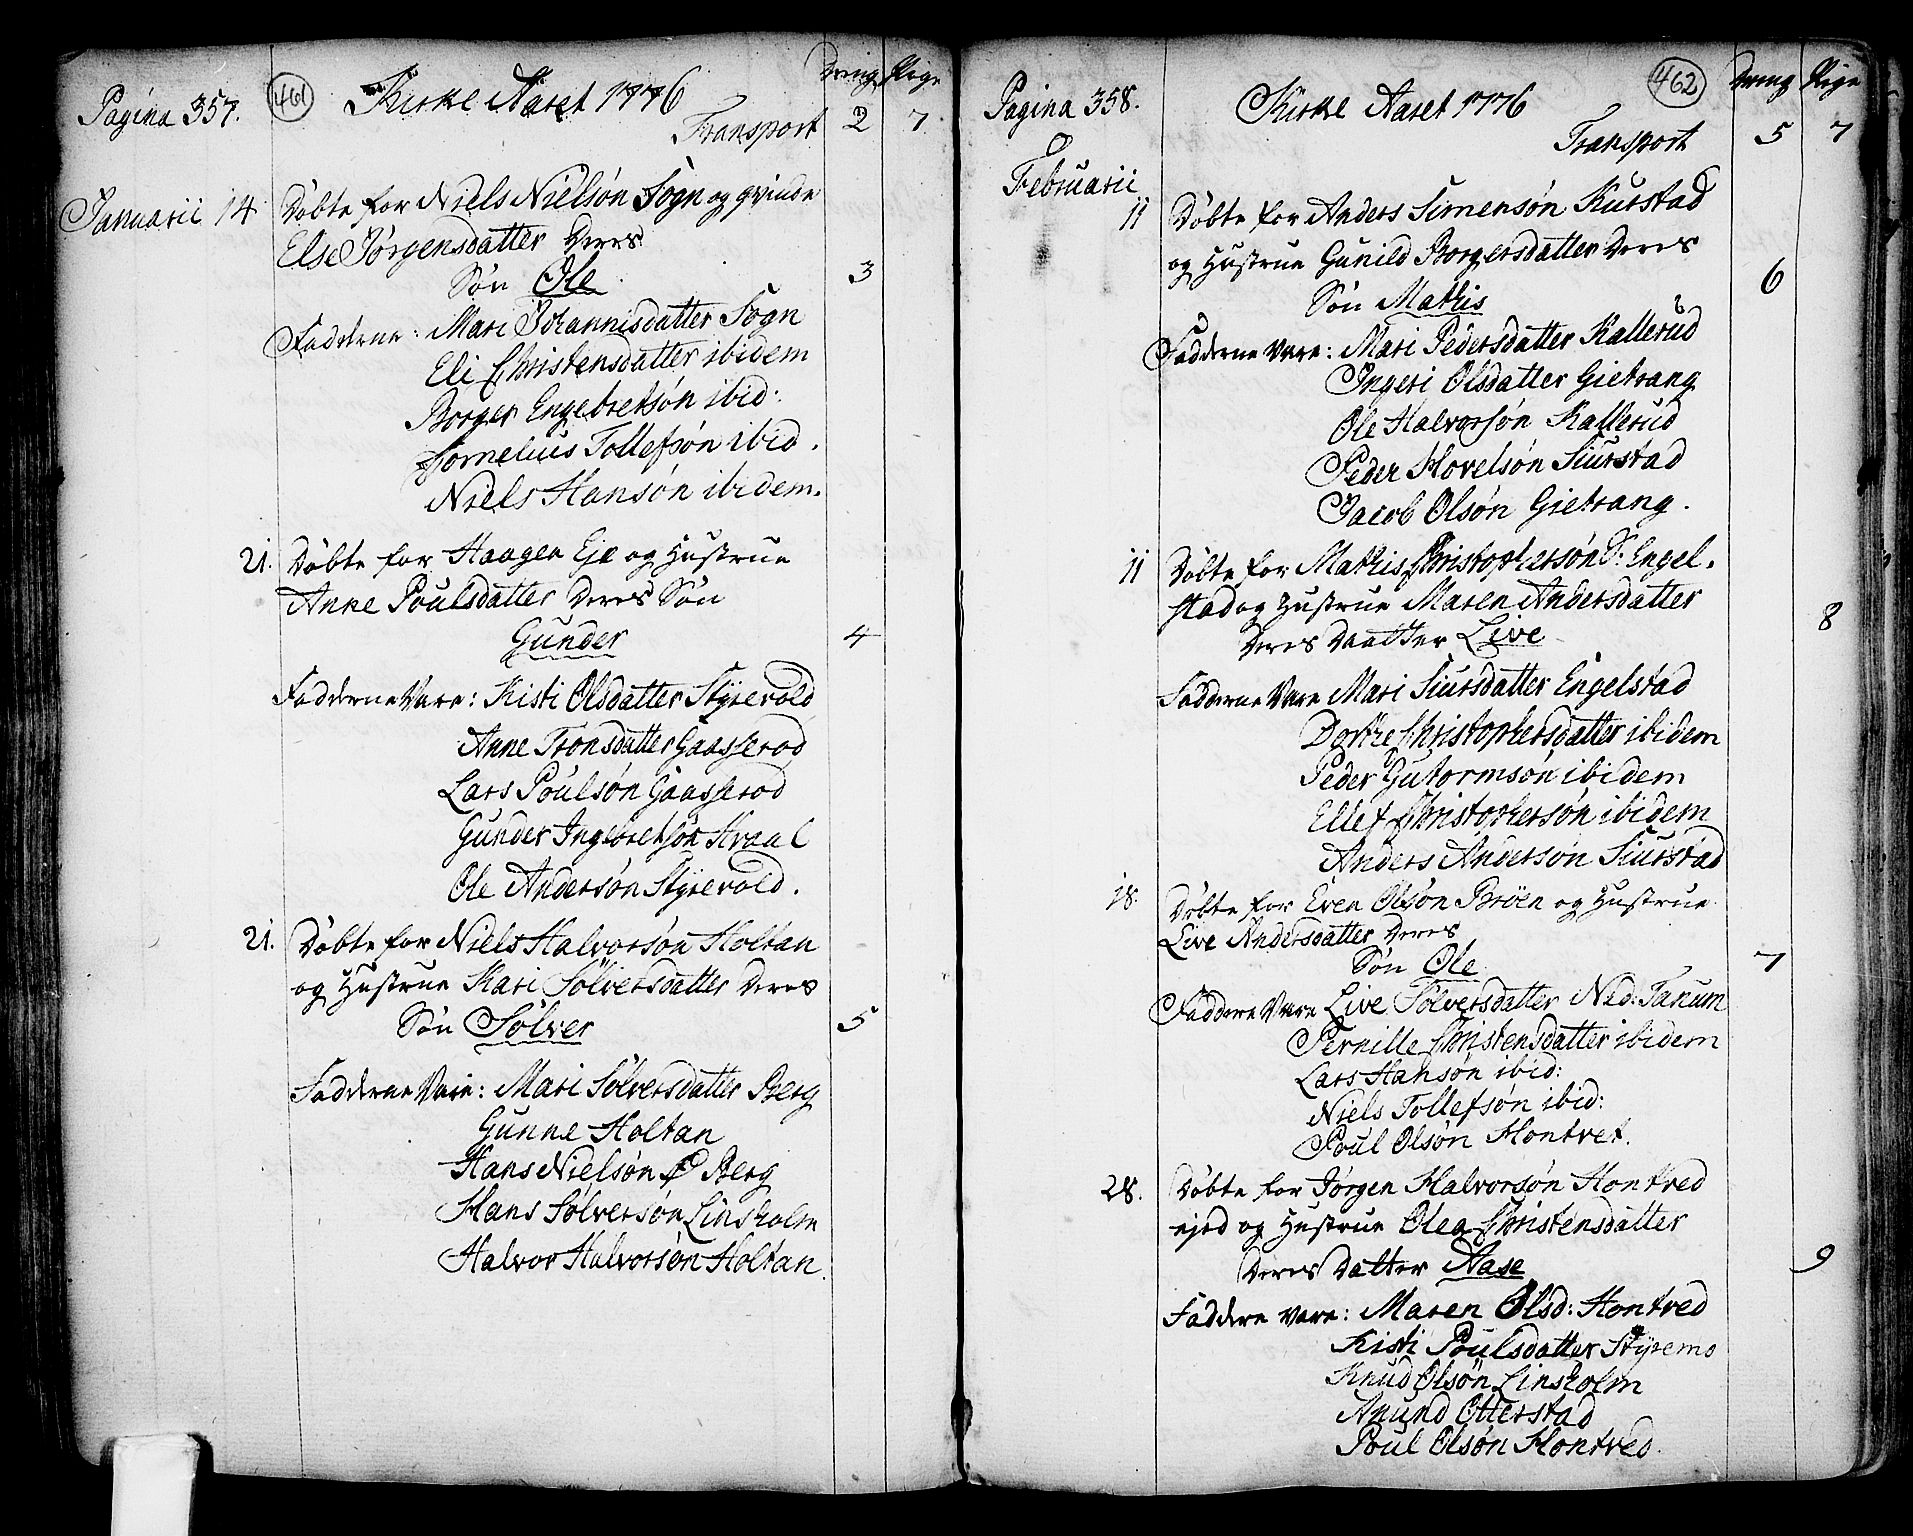 Pagina 357.
461
Kirke Aaret 1776
Dreng Pige
Transport 2 7
Januarii 14 Døbte for Niels Nielsøn Sogn og qvinde
Else Jørgensdatter Deres
Søn Ole 3
Fadderne: Mari Johannisdatter Sogn
Eli Christensdatter ibidem
Borger Engebretsøn ibid:
Cornelius Tollefsøn ibid.
Niels Hansøn ibidem.
21. Døbte for Haagen Eje og Hustrue
Anne Poulsdatter Deres Søn
Gunder 4
Fadderne Vare: Kisti Olsdatter Styrevold
Anne Tronsdatter Gaasserød
Lars Poulsøn Gaasserød
Gunder Ingebretsøn Kraal
Ole Andersøn Styrevold.
21. Døbte for Niels Halvorsøn Holtan
og Hustrue Kari Sølversdatter Deres
Søn Sølver 5
Fadderne Vare: Mari Sølversdatter Berg
Gunne Holtan
Hans Nielsøn Berg
Hans Sølversøn Linsholm
Halvor Halvorsøn Holtan.
Pagina 358.
Kirke Aaret 1776
462
Dreng Pige
Transport 5 7
Februarii
11 Døbte for Anders Simensøn Kurstad
og Hustrue Gunild Borgersdatter Deres
Søn Mathis 6
Fadderne Vare: Mari Pedersdatter Kallerud
Ingeri Olsdatter Gietrang
Ole Halvorsøn Kallerud
Peder Hovelsøn Siurstad
Jacob Olsøn Gietrang.
11 Døbte for Mathis Christophersøn S: Engel.
stad og Hustrue Maren Andersdatter
Deres Daatter Live 8
Fadderne Vare Mari Siursdatter Engelstad
Dorthe Christophersdatter ibidem
Peder Gutormsøn ibidem
Ellef Christophersøn ibidem
Anders Andersøn Siurstad
18. Døbte for Even Olsøn Brøen og Hustrue
Live Andersdatter Deres
Søn Ole 7
Faddere Vare Live Sølversdatter Ned: Tanum
Pernille Christensdatter ibidem
Lars Hansøn ibid:
Niels Tollefsøn ibid:
Poul Olsøn Hontvet.
28. Døbte for Jørgen Halvorsøn Hontved
ejed og Hustrue Olea Christensdatter
Deres Datter Aase 9
Faddere Vare: Maren Olsd: Hontved
Kisti Poulsdatter Styremo
Knud Olsøn Linsholm
Anund Otterstad
Poul Olsøn Hontved.